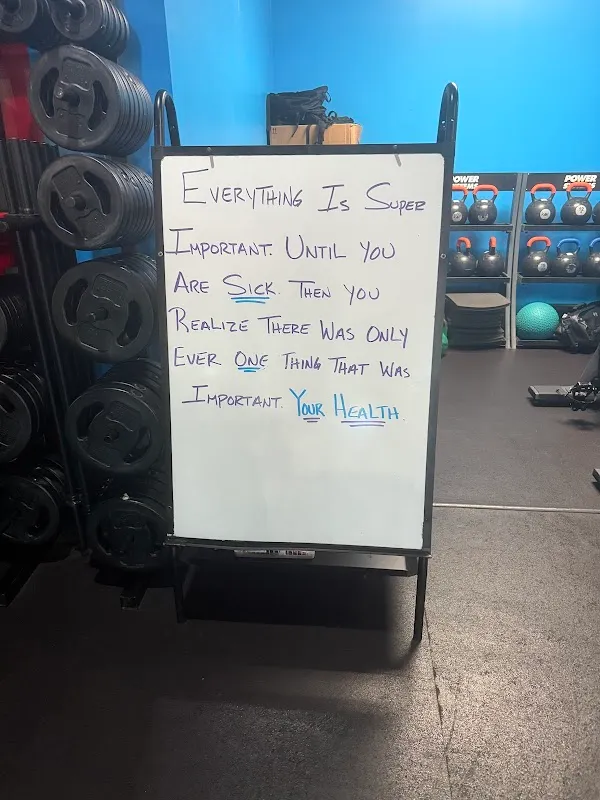 POWER
POWER
Everything Is Super
Important. Until you
Are Sick. Then you
Realize There Was Only
Ever One Thing That Was
Important. Your Health.